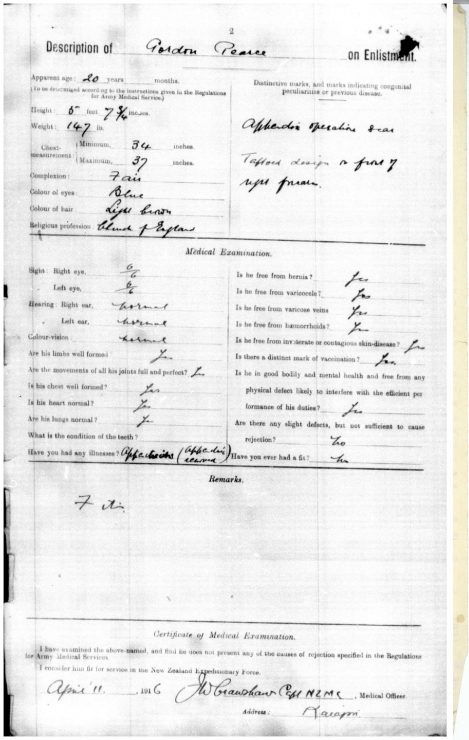 2
Description of Gordon Pearce on Enlistment.
Apparent age: 20 years months.
(To be determined according to the instructions given in the Regulations
for Army Medical Service.)
Height: 5 feet 7 3/4 inches
Weight: 147 lb.
Chest-measurement { Minimum, 34 inches
Maximum, 37 inches.
Complexion: Fair
Colour of eyes: Blue
Colour of hair: Light brown
Religious profession: Church of England
Distinctive marks, and marks indicating congenital
peculiarities or previous disease.
Appendix operation scar
Tattooed design on front of
right forearm.
Medical Examination.
Sight: Right eye, 6/6
" Left eye, 6/6
Hearing: Right ear, normal
" Left ear, normal
Colour-vision: normal
Are his limbs well formed Yes
Are the movements of all his joints full and perfect? Yes
Is his chest well formed? Yes
Is his heart normal? Yes
Are his lungs normal? Yes
What is the condition of the teeth?
Have you had any illnesses? Appendicitis (Appendix removed)
Is he free from hernia? Yes
Is he free from varicocele? Yes
Is he free from varicose veins Yes
Is he free from hæmorrhoids? Yes
Is he free from inveterate or contagious skin-disease? Yes
Is there a distinct mark of vaccination? Yes
Is he in good bodily and mental health and free from any
physical defect likely to interfere with the efficient per-
formance of his duties? Yes
Are there any slight defects, but not sufficient to cause
rejection? No
Have you ever had a fit? No
Remarks.
Certificate of Medical Examination.
I have examined the above-named, and find he does not present any of the causes of rejection specified in the Regulations
for Army Medical Services
I consider him fit for service in the New Zealand Expeditionary Force.
April 11 1916 JW Crawshaw Capt NZMC, Medical Officer
Address: